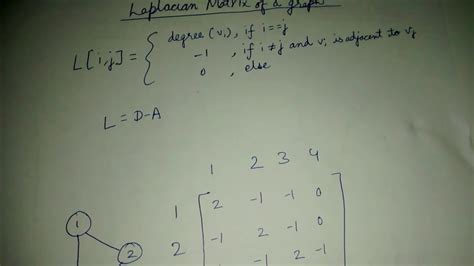 Laplacian Matrix of a graph
L[i,j] = { degree (vi), if i==j
-1, if i ≠ j and vi is adjacent to vj
0, else
L = D-A
1 2 3 4
1 2 -1 -1 0
2 -1 2 -1 0
-1 2 -1
1
2